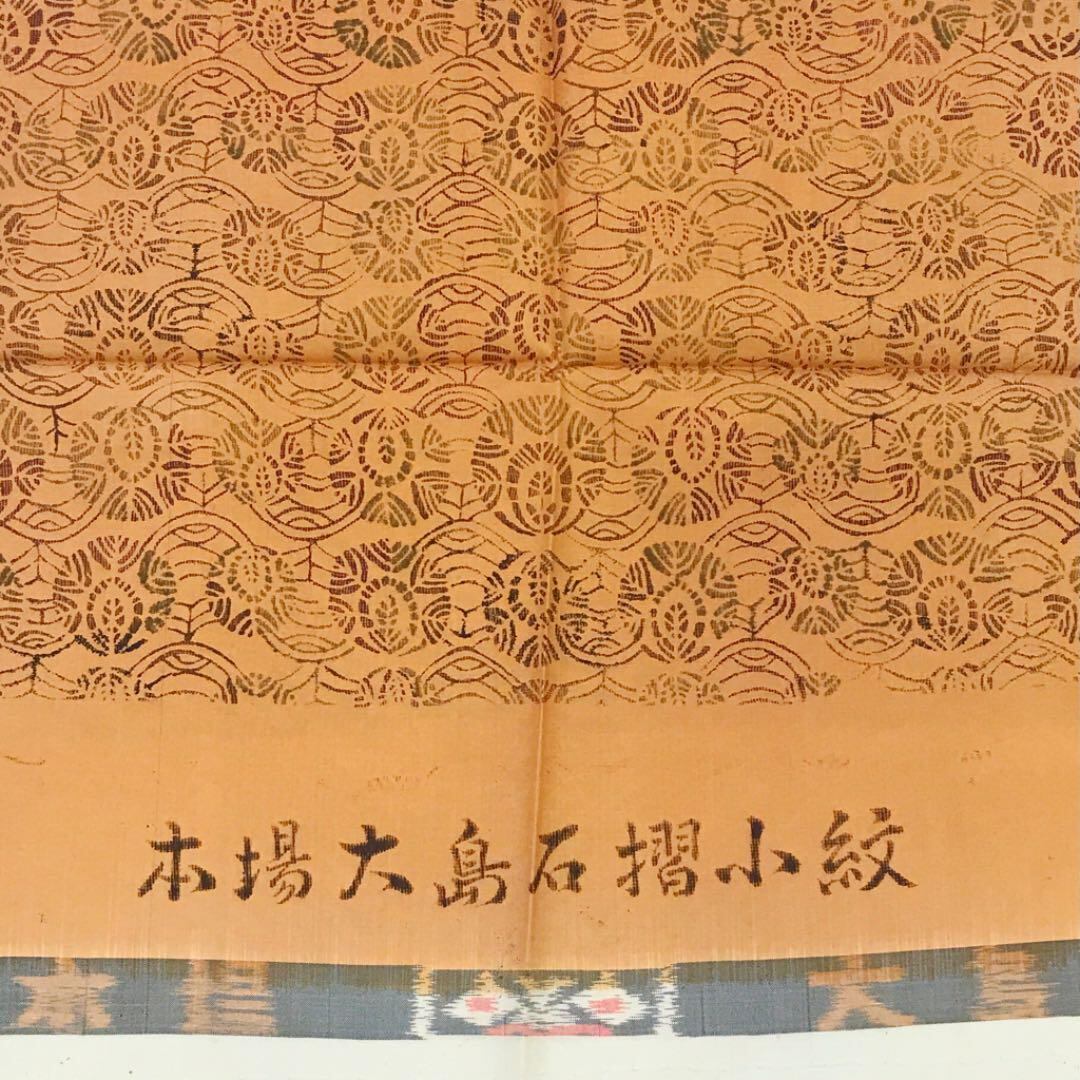 本場大島石摺小紋